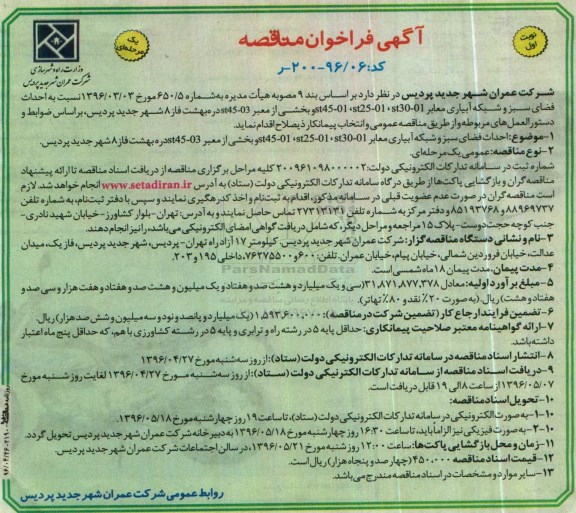 نوبت اول
آگهی فراخوان مناقصه
یک مرحله‌ای
وزارت راه و شهرسازی
شرکت عمران شهر جدید پردیس
کد: ۹۶/۰۶-۲۰۰-ر
شرکت عمران شهر جدید پردیس در نظر دارد بر اساس بند ۹ مصوبه هیأت مدیره به شماره ۶۵۰/۵ مورخ ۱۳۹۶/۰۳/۰۳ نسبت به احداث
فضای سبز و شبکه آبیاری معابر st45-01،st25-01،st30-01 و بخشی از معبر st45-03 دره بهشت فاز ۸ شهر جدید پردیس، بر اساس ضوابط و
دستورالعمل‌های مربوطه و از طریق مناقصه عمومی و انتخاب پیمانکار ذیصلاح اقدام نماید.
۱-موضوع: احداث فضای سبز و شبکه آبیاری معابر st45-01،st25-01،st30-01 و بخشی از st45-03 دره بهشت فاز ۸ شهر جدید پردیس.
۲-نوع مناقصه: عمومی یک مرحله‌ای.
شماره ثبت در سامانه تدارکات الکترونیکی دولت: ۲۰۰۹۶۱۰۹۸۰۰۰۰۰۲ کلیه مراحل برگزاری مناقصه از دریافت اسناد مناقصه تا ارائه پیشنهاد
مناقصه گران و بازگشایی پاکت‌ها از طریق درگاه سامانه تدارکات الکترونیکی دولت (ستاد) به آدرس www.setadiran.ir انجام خواهد شد. لازم
است مناقصه گران در صورت عدم عضویت قبلی در سامانه مذکور، اقدام به ثبت‌نام و اخذ کد رهگیری نمایند و سپس با دفتر ثبت‌نام، به شماره تلفن
۸۸۹۶۹۷۳۷ و ۸۵۱۹۳۷۶۸ و دفتر مرکز به شماره تلفن ۲۷۳۱۳۱۳۱ تماس حاصل نمایند و به آدرس: تهران- بلوار کشاورز- خیابان شهید نادری-
جنب کوچه حجت‌دوست- پلاک ۱۵ مراجعه و مراحل دیگر، که شامل دریافت گواهی امضای الکترونیکی می‌باشد، را نیز انجام دهند.
۳-نام و نشانی دستگاه مناقصه گزار: شرکت عمران شهر جدید پردیس. کیلومتر ۱۷ آزادراه تهران- پردیس، شهر جدید پردیس، فاز یک، میدان
عدالت، خیابان فروردین شمالی، خیابان پیام، خیابان عمران. تلفن: ۶۰۰ و ۷۶۲۷۵۵۰۰، داخلی ۱۹۵ و ۲۰۳.
۴-مدت پیمان: مدت پیمان ۱۸ ماه شمسی است.
۵-مبلغ برآورد اولیه: معادل ۳۱.۸۷۱.۸۷۷.۳۷۸ (سی و یک میلیارد و هشت صد و هفتاد و یک میلیون و هشت صد و هفتاد و هفت هزار و سی صد و
هفتاد و هشت) ریال. (به صورت ۲۰٪ نقد و ۸۰٪ تهاتر).
۶-تضمین فرایند ارجاع کار (تضمین شرکت در مناقصه): ۱،۵۹۳،۶۰۰،۰۰۰ (یک میلیارد و پانصد و نود و سه میلیون و شش صد هزار) ریال.
۷-ارائه گواهینامه معتبر صلاحیت پیمانکاری: حداقل پایه ۵ در رشته راه و ترابری و پایه ۵ در رشته کشاورزی با هم، که حداقل پنج ماه اعتبار
داشته باشد.
۸-انتشار اسناد مناقصه در سامانه تدارکات الکترونیکی دولت (ستاد): از روز سه‌شنبه مورخ ۱۳۹۶/۰۴/۲۷
۹-دریافت اسناد مناقصه از سامانه تدارکات الکترونیکی دولت (ستاد): از روز سه‌شنبه مورخ ۱۳۹۶/۰۴/۲۷ لغایت روز شنبه مورخ
۱۳۹۶/۰۵/۰۷ از ساعت ۸ الی ۱۹ قابل دریافت است.
۱۰-تحویل اسناد مناقصه:
۱۰-۱-به صورت الکترونیکی در سامانه تدارکات الکترونیکی دولت (ستاد)، تا ساعت ۱۹ روز چهارشنبه مورخ ۱۳۹۶/۰۵/۱۸.
۱۰-۲-به صورت فیزیکی نیز الزاماً باید، تا ساعت ۱۶:۳۰ روز چهارشنبه مورخ ۱۳۹۶/۰۵/۱۸ به دبیرخانه شرکت عمران شهر جدید پردیس تحویل گردد.
۱۱-زمان و محل بازگشایی پاکت‌ها: ساعت ۱۲:۰۰ روز شنبه مورخ ۱۳۹۶/۰۵/۲۱، در سالن اجتماعات شرکت عمران شهر جدید پردیس.
۱۲-قیمت اسناد مناقصه ۴۵۰،۰۰۰ (چهار صد و پنجاه هزار) ریال است.
۱۳-سایر موارد و مشخصات در اسناد مناقصه مندرج می‌باشد.
روابط عمومی شرکت عمران شهر جدید پردیس
ParsNamadData